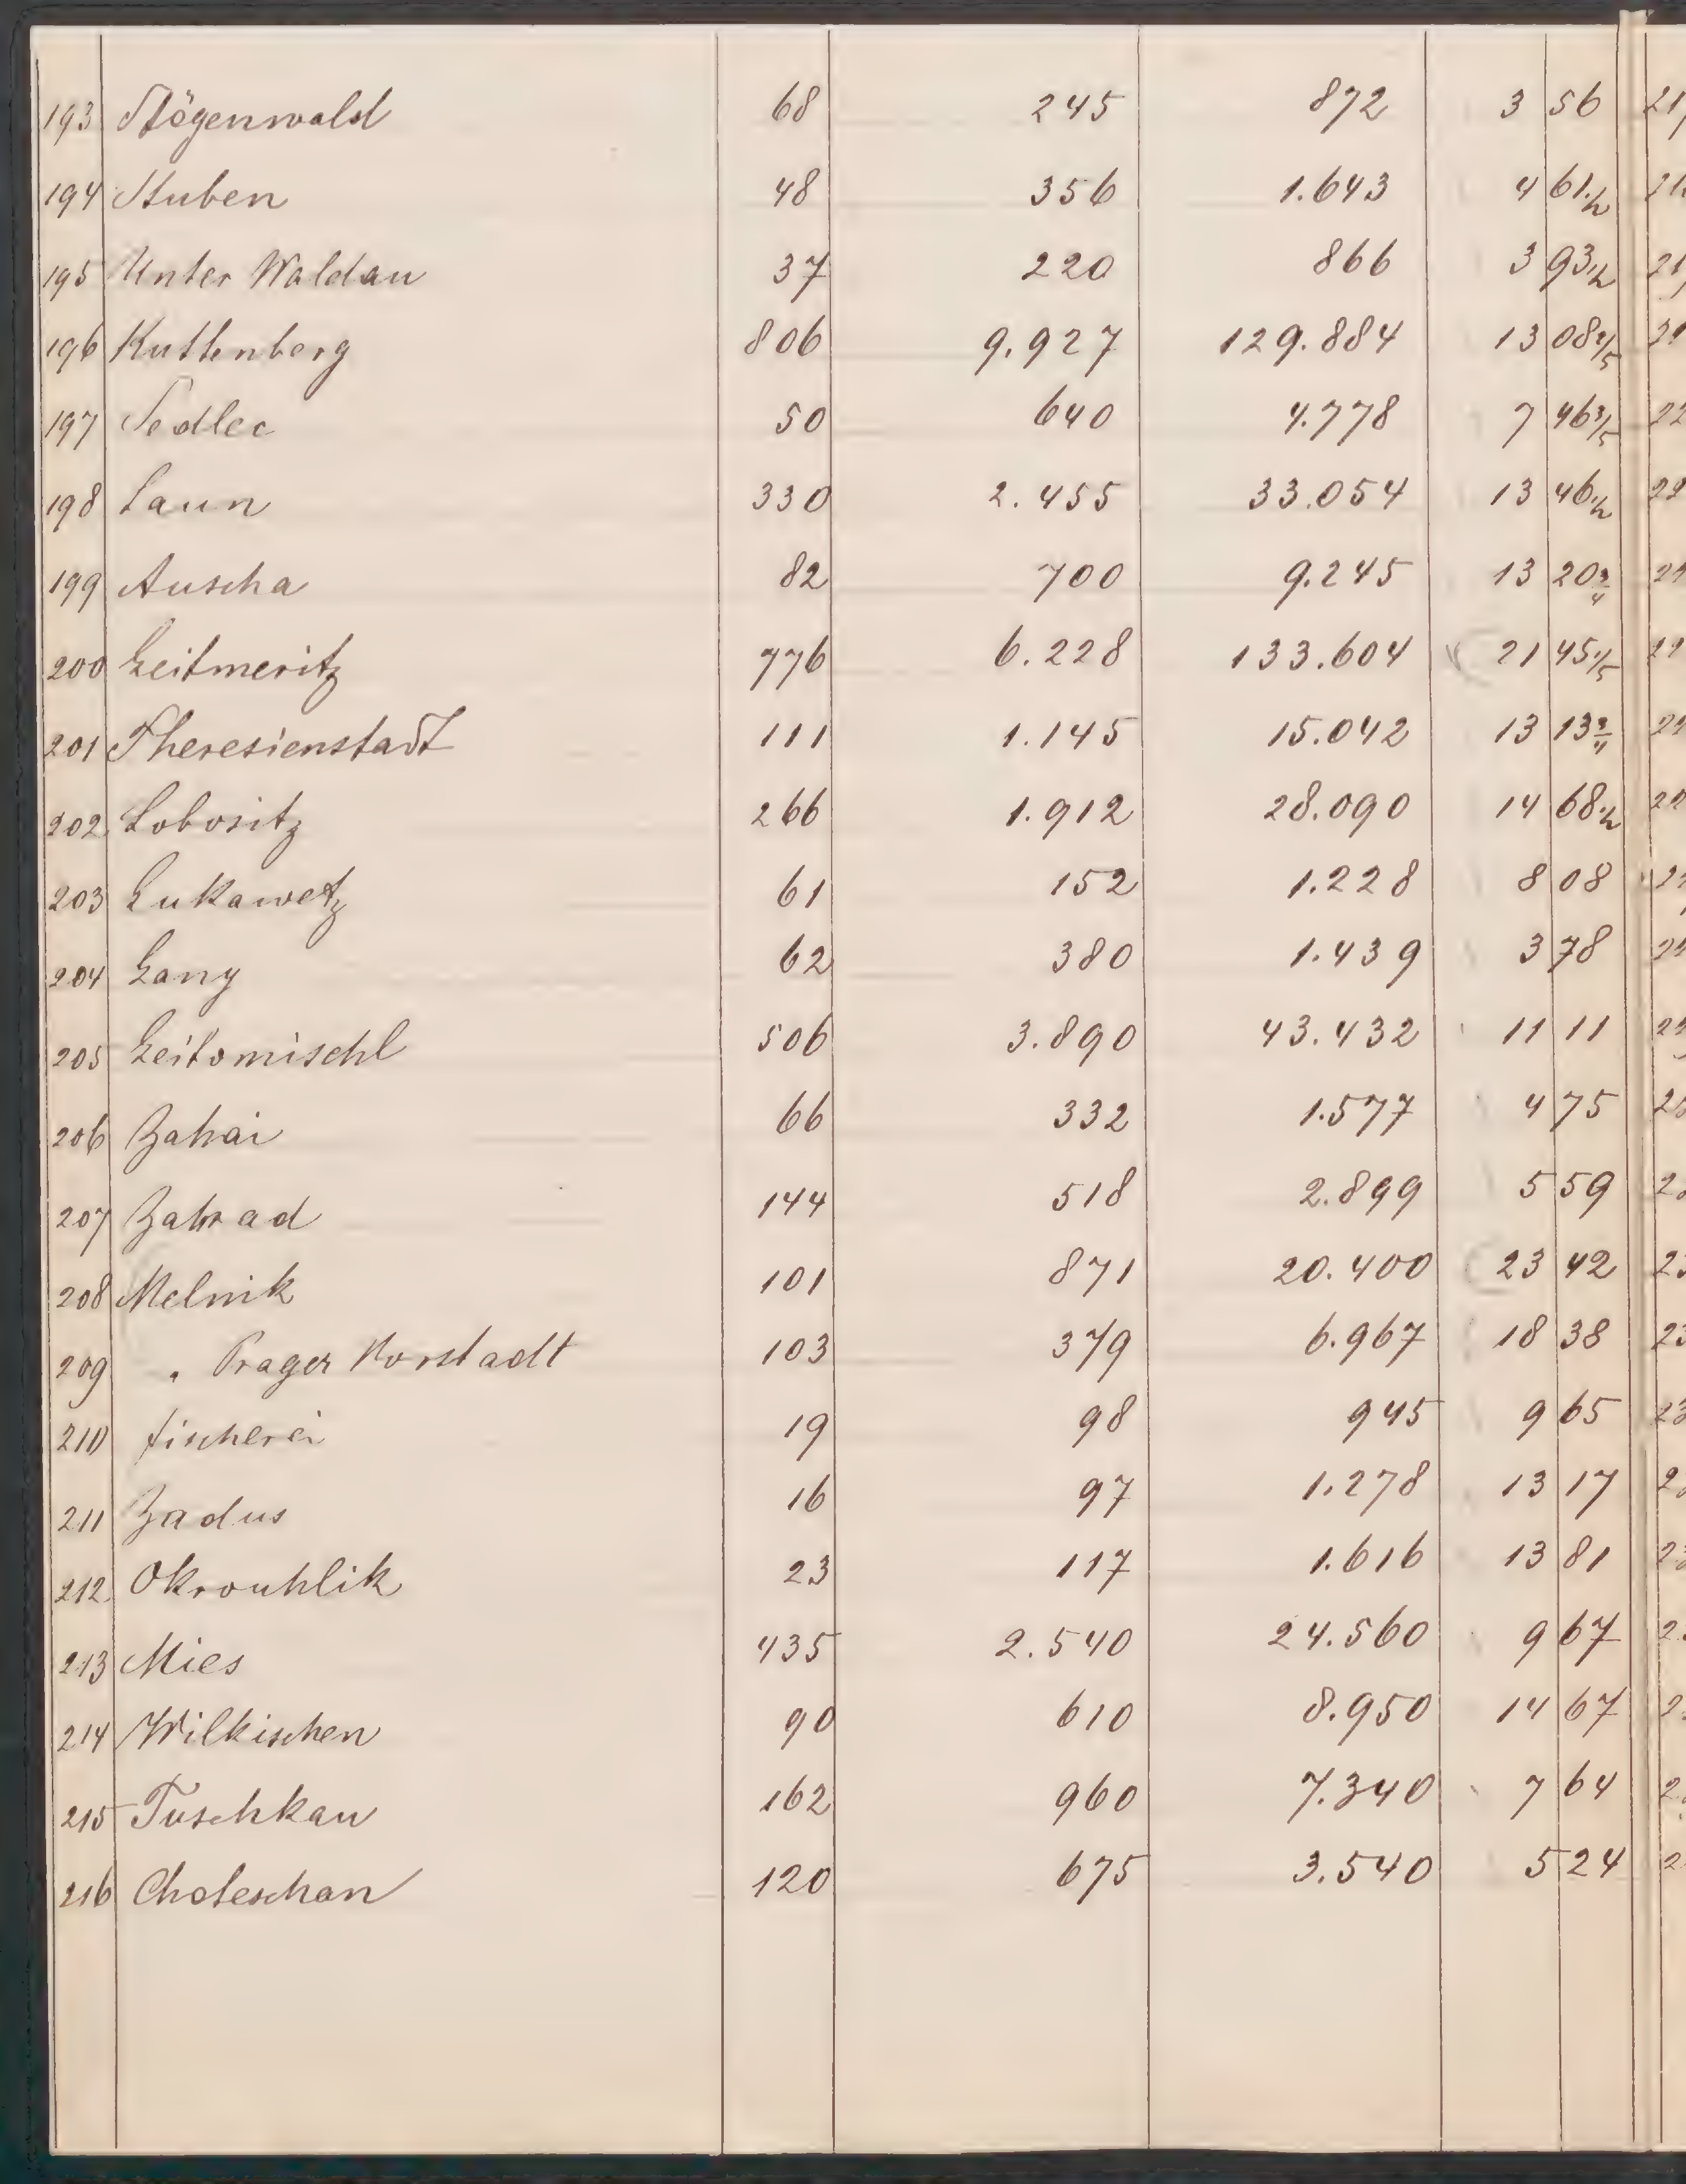 193 Stögenwald 68 245 872 3 56
194 Stuben 48 356 1.643 4 61 1/2
195 Unter Waldau 37 220 866 3 93 1/2
196 Kuttenberg 806 9.927 129.884 13 08 2/5
197 Sedlec 50 640 4.778 7 46 3/5
198 Laun 330 2.455 33.054 13 46 1/2
199 Auscha 82 700 9.245 13 20 3/4
200 Leitmeritz 776 6.228 133.604 21 45 1/5
201 Theresienstadt 111 1.145 15.042 13 13 3/4
202 Lobositz 266 1.912 28.090 14 68 1/2
203 Lukawetz 61 152 1.228 8 08
204 Lany 62 380 1.439 3 78
205 Leitomischl 506 3.890 43.432 11 11
206 Zahai 66 332 1.577 4 75
207 Zahrad 144 518 2.899 5 59
208 Melnik 101 871 20.400 23 42
209 " Prager Vorstadt 103 379 6.967 18 38
210 Fischerei 19 98 945 9 65
211 Zadus 16 97 1.278 13 17
212 Okrouhlik 23 117 1.616 13 81
213 Mies 435 2.540 24.560 9 67
214 Wilkischen 90 610 8.950 14 67
215 Tuschkau 162 960 7.340 7 64
216 Choteschau 120 675 3.540 5 24